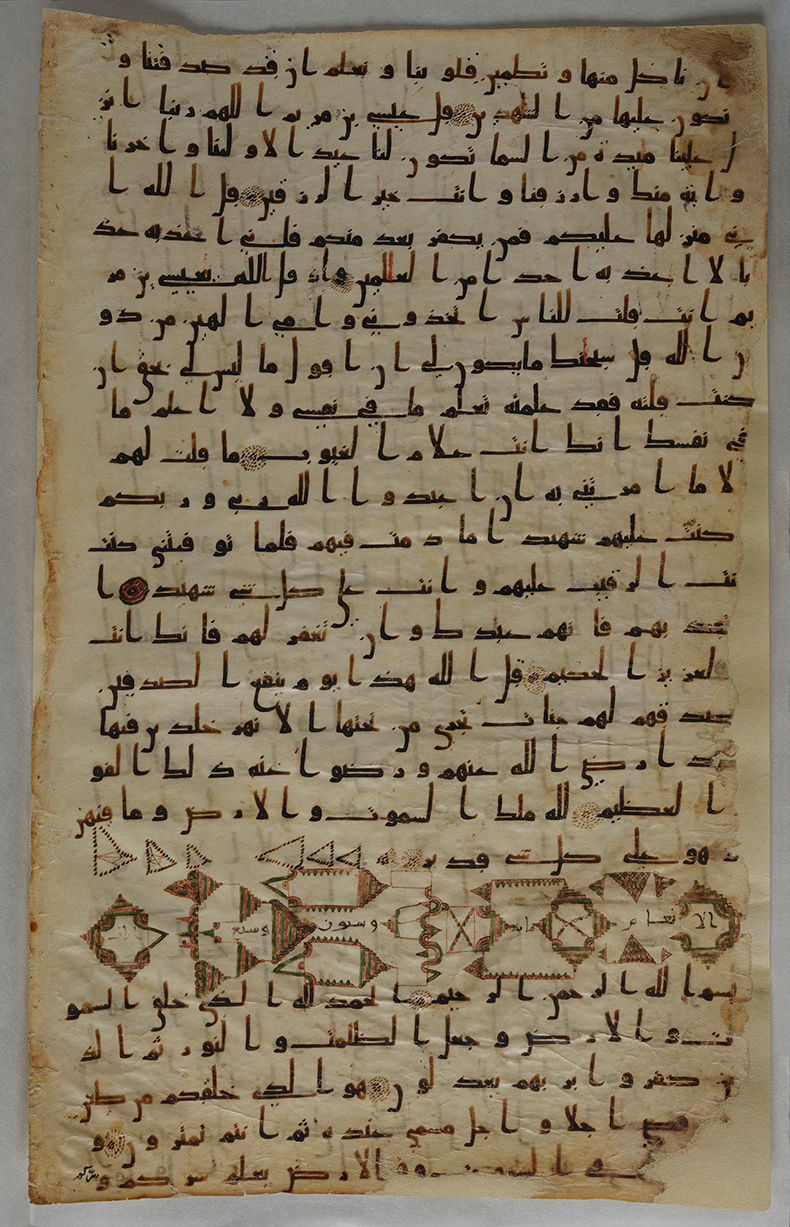 ان ناكل منها و تطمين قلوبنا و نعلم ان قد صدقتنا و
نكون عليها من الشهدين قل عيسى بن مريم اللهم ربنا انز
ل علينا ميدة من السما تكون لنا عيدا لاولنا واخرنا
و اية منك وارزقنا وانت خير الرزقين قل الله ا
ني منزلها عليكم فمن يكفر بعد منكم فاني اعذبه عذ
ابا لا اعذبه احدا من العلمين واذ قل الله يعيسى بن مر
يم انت قلت للناس اتخذوني وامي الهين من دو
ن الله قل سبحنك ما يكون لي ان اقول ما ليس لي بحق ان
كنت قلته فقد علمته تعلم ما في نفسي ولا اعلم ما
في نفسك انك انت علام الغيوب ما قلت لهم
الا ما امرتني به ان اعبدوا الله ربي وربكم
كنت عليهم شهيدا ما دمت فيهم فلما توفيتني كنت
انت الرقيب عليهم وانت على كل شي شهيد ا
تعذبهم فانهم عبدك وان تغفر لهم فانك انت
العزيز الحكيم قل الله هذا يوم ينفع الصدقين
صدقهم لهم جنات تجري من تحتها الانهر خلدين فيها
ابدا رضي الله عنهم ورضوا عنه ذلك الفو
ز العظيم لله ملك السموت والارض وما فيهن
و هو على كل شي قدير
الانعام ماية وستون وسبع ايات
بسم الله الرحمن الرحيم الحمد لله الذي خلق السمو
ت والارض وجعل الظلمت والنور ثم الذ
ين كفروا بربهم يعدلون هو الذي خلقكم من طين
قضى اجلا واجل مسمى عنده ثم انتم تمترون و
في السموت وفي الارض يعلم سركم و